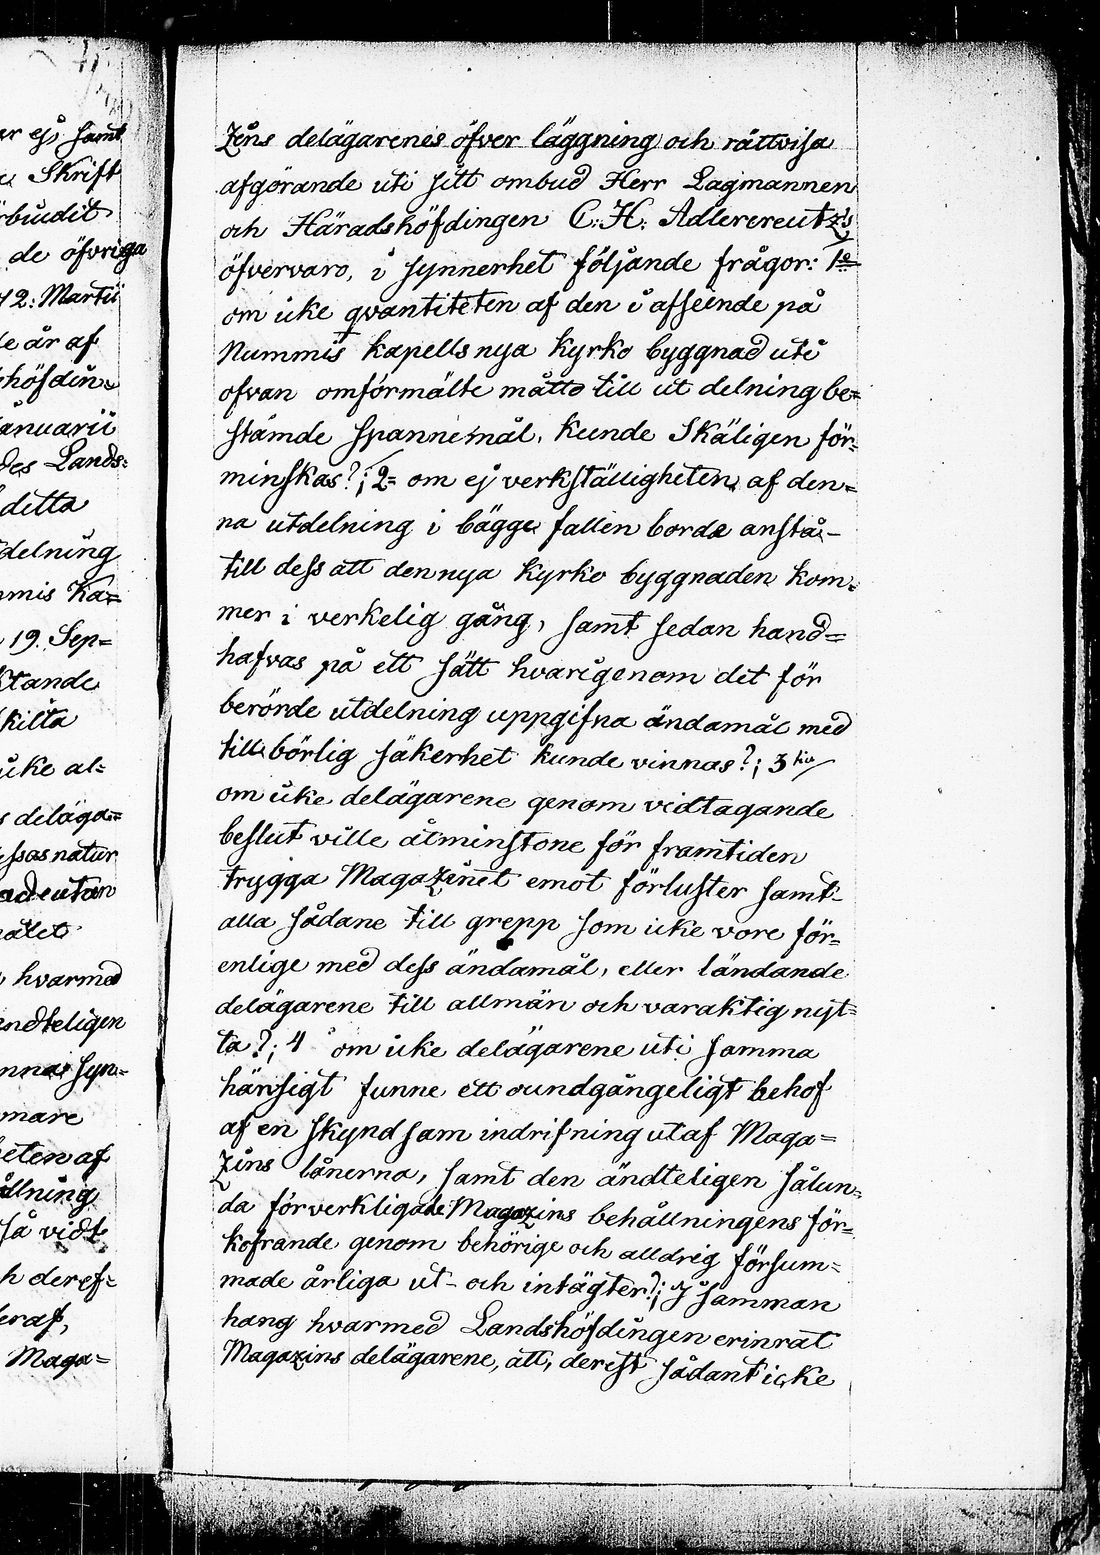 er ej, samt
Skrift
rbudit
de öfvriga
12: Martii
le år af
shöfdin=
anuarii
des Lands=
detta
delning
mmis Ka=
19. Sep=
ktande
skilta
icke al=
s deläga=
essas natur
ade utan
målet
hvarmed
endteligen
nnas syn=
mare
eten af
ållning
så vidt
h deref=
eraf,
Maga=
Zins delägarenes öfver läggning och rättvisa
afgörande uti sitt ombud Herr Lagmannen
och Häradshöfdingen C: H: Adlercreutz's
öfvervaro, i synnerhet följande frågor: 1o
om icke qvantiteten af den i afseende på
Nummis kapells nya kyrko byggnad uti
ofvan omförmälte måtto till ut delning be=
stämde spannemål, kunde skäligen för=
minskas?; 2= om ej verkställigheten af den=
na utdelning i bägge fallen borde anstå-
till dess att den nya kyrko byggnaden kom=
mer i verkelig gång, samt sedan hand=
hafvas på ett sätt hvarigenom det för
berörde utdelning uppgifna ändamål med
tillbörlig säkerhet kunde vinnas?; 3tio
om icke delägarene genom vidtagande
beslut ville åtminstone för framtiden
trygga Magazinet emot förluster samt
alla sådane till grepp som icke vore för=
enlige med dess ändamål, eller ländande
delägarene till allmän och varaktig nyt=
ta?; 4o om icke delägarene uti samma
hänsigt funne ett oundgängeligt behof
af en skyndsam indrifning utaf Maga=
Zins lånerna, samt den ändteligen sålun=
da förverkligade Magazins behållningens för=
kofrande genom behörige och alldrig försum=
made årliga ut- och intägter?; I samman
hang hvarmed Landshöfdingen erinrat
Magazins delägarene, att, derest sådant icke